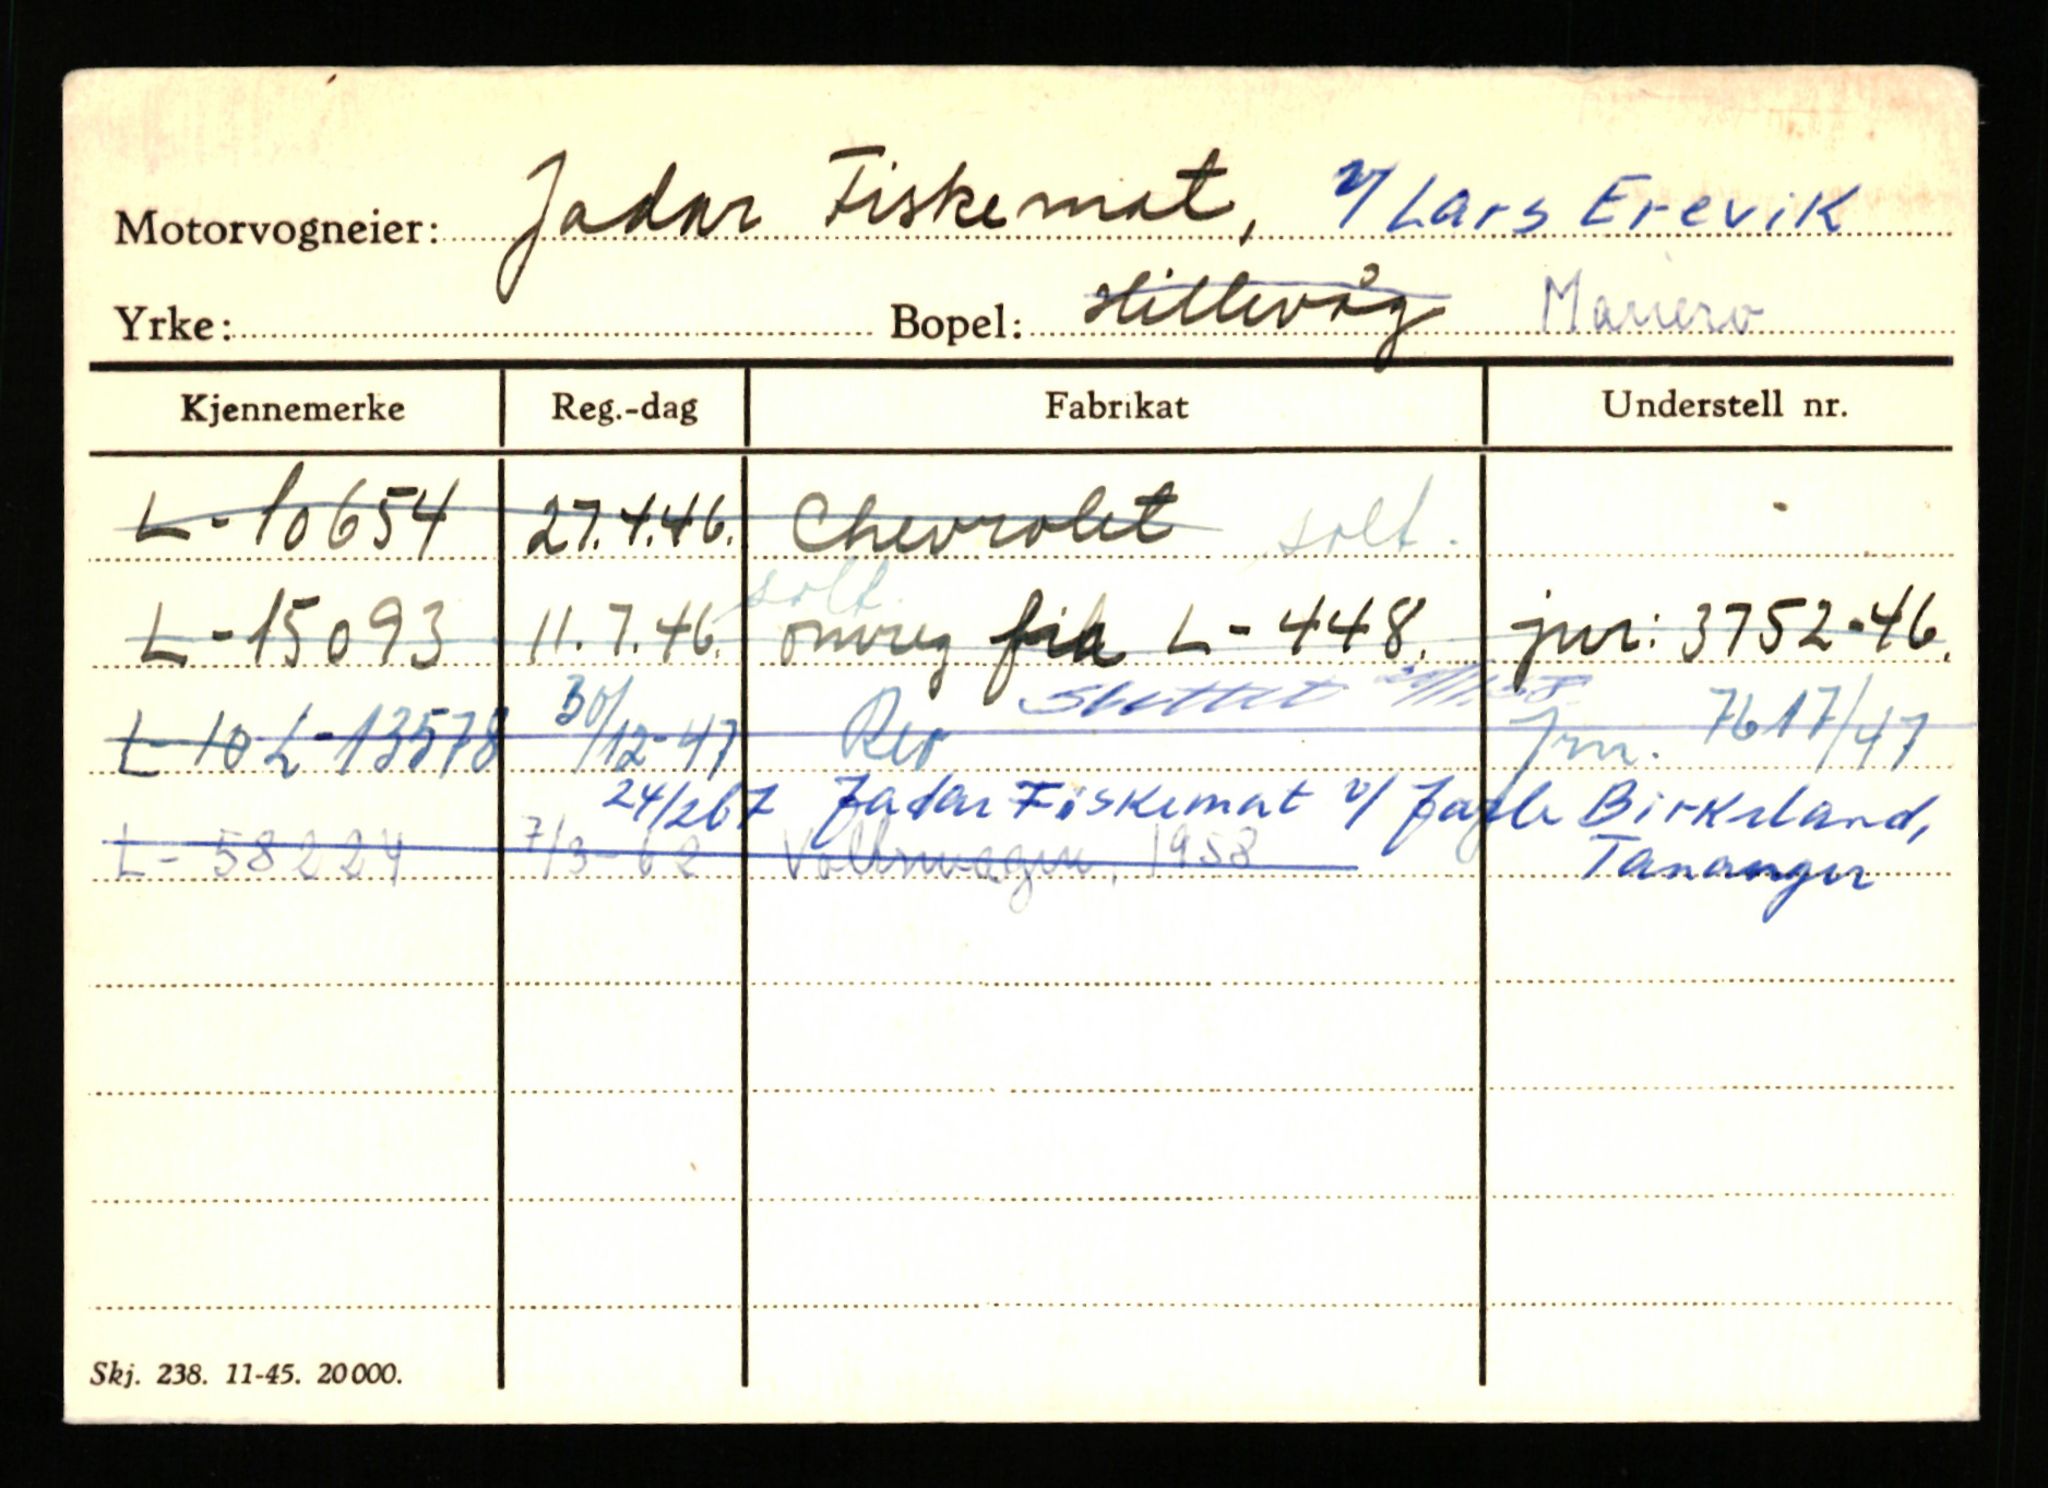 Motorvogneier: Jadar Fiskemat, v/ Lars Erevik
Yrke: Bopel: Hillevåg Mariero
Kjennemerke Reg.-dag Fabrikat Understell nr.
L-10654 27.4.46. Chevrolet solt.
solt.
L-15093 11.7.46. omreg fra L-448. jnr: 3752-46.
Slettet
L-10 L-13578 30/12-47 Reo Jnr. 7617/47
24/267 Jadar Fiskemat v/ Birkeland,
L-58224 7/3-62 Volkswagen, 1958 Tananger
Skj. 238. 11-45. 20000.